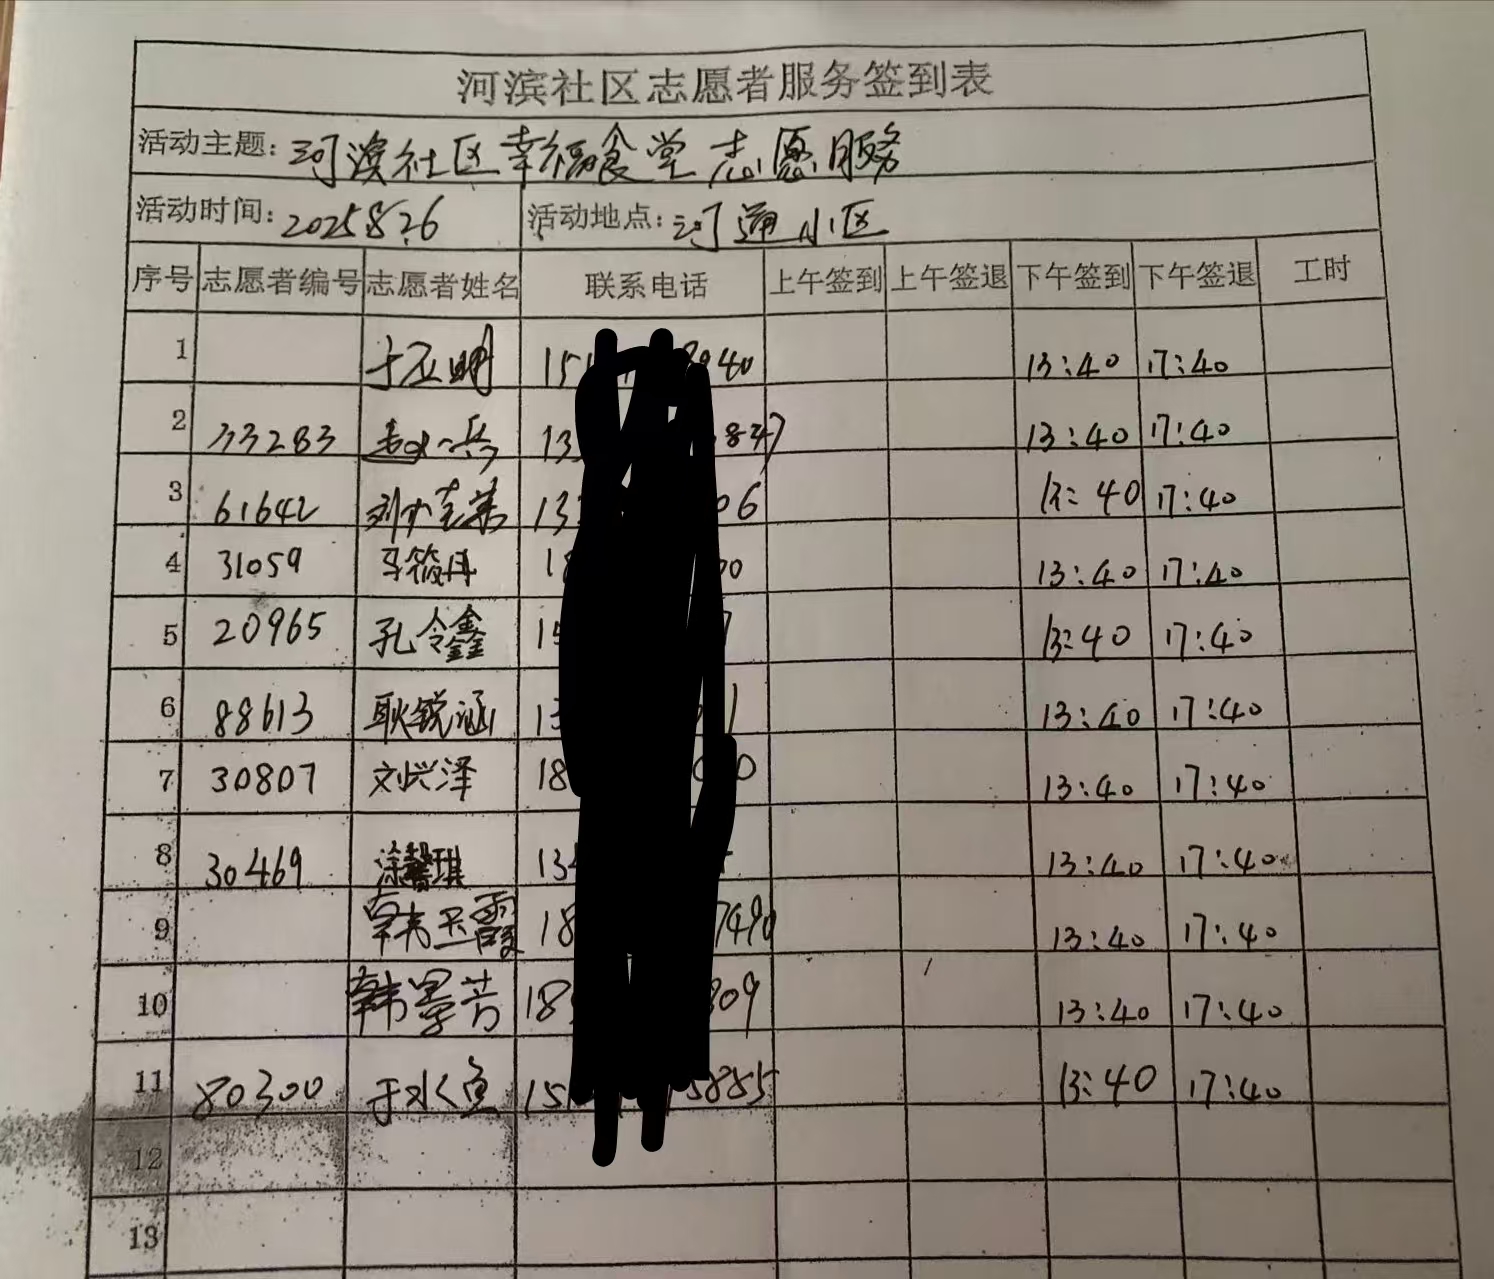 河滨社区志愿者服务签到表
活动主题: 河滨社区幸福食堂志愿服务
活动时间: 2025.8.26 活动地点: 河通小区
序号 志愿者编号 志愿者姓名 联系电话 上午签到 上午签退 下午签到 下午签退 工时
1 于正明 15 940 13:40 17:40
2 33283 赵小兵 13 847 13:40 17:40
3 61642 刘 13 06 13:40 17:40
4 31059 马筱丹 18 00 13:40 17:40
5 20965 孔令鑫 15 7 13:40 17:40
6 88613 耿锐涵 13 1 13:40 17:40
7 30807 刘兴泽 18 0 13:40 17:40
8 30469 涂馨琪 13 13:40 17:40
9 韩玉霞 18 7490 13:40 17:40
10 韩景芳 18 809 13:40 17:40
11 80300 于水鱼 15 5855 13:40 17:40
12
13